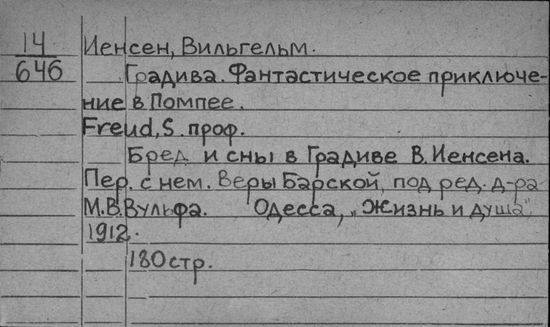 14
646
Иенсен, Вильгельм.
Градива. Фантастическое приключе-
ние в Помпее.
Freud, S. проф.
Бред и сны в Градиве В. Иенсена.
Пер. с нем. Веры Барской, под ред. д-ра
М.В. Вульфа. Одесса, „Жизнь и душа",
1912.
180 стр.